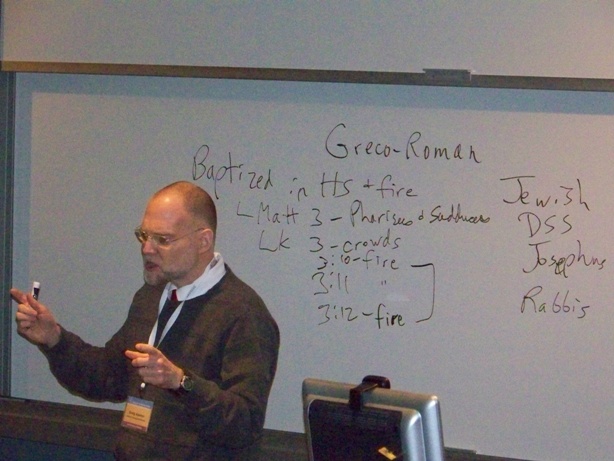 Greco-Roman
Baptized in HS + fire
Matt 3 - Pharisees + Sadducees
Lk 3 - crowds
3:10 - fire
3:11 "
3:12 - fire
Jewish
DSS
Josephus
Rabbis